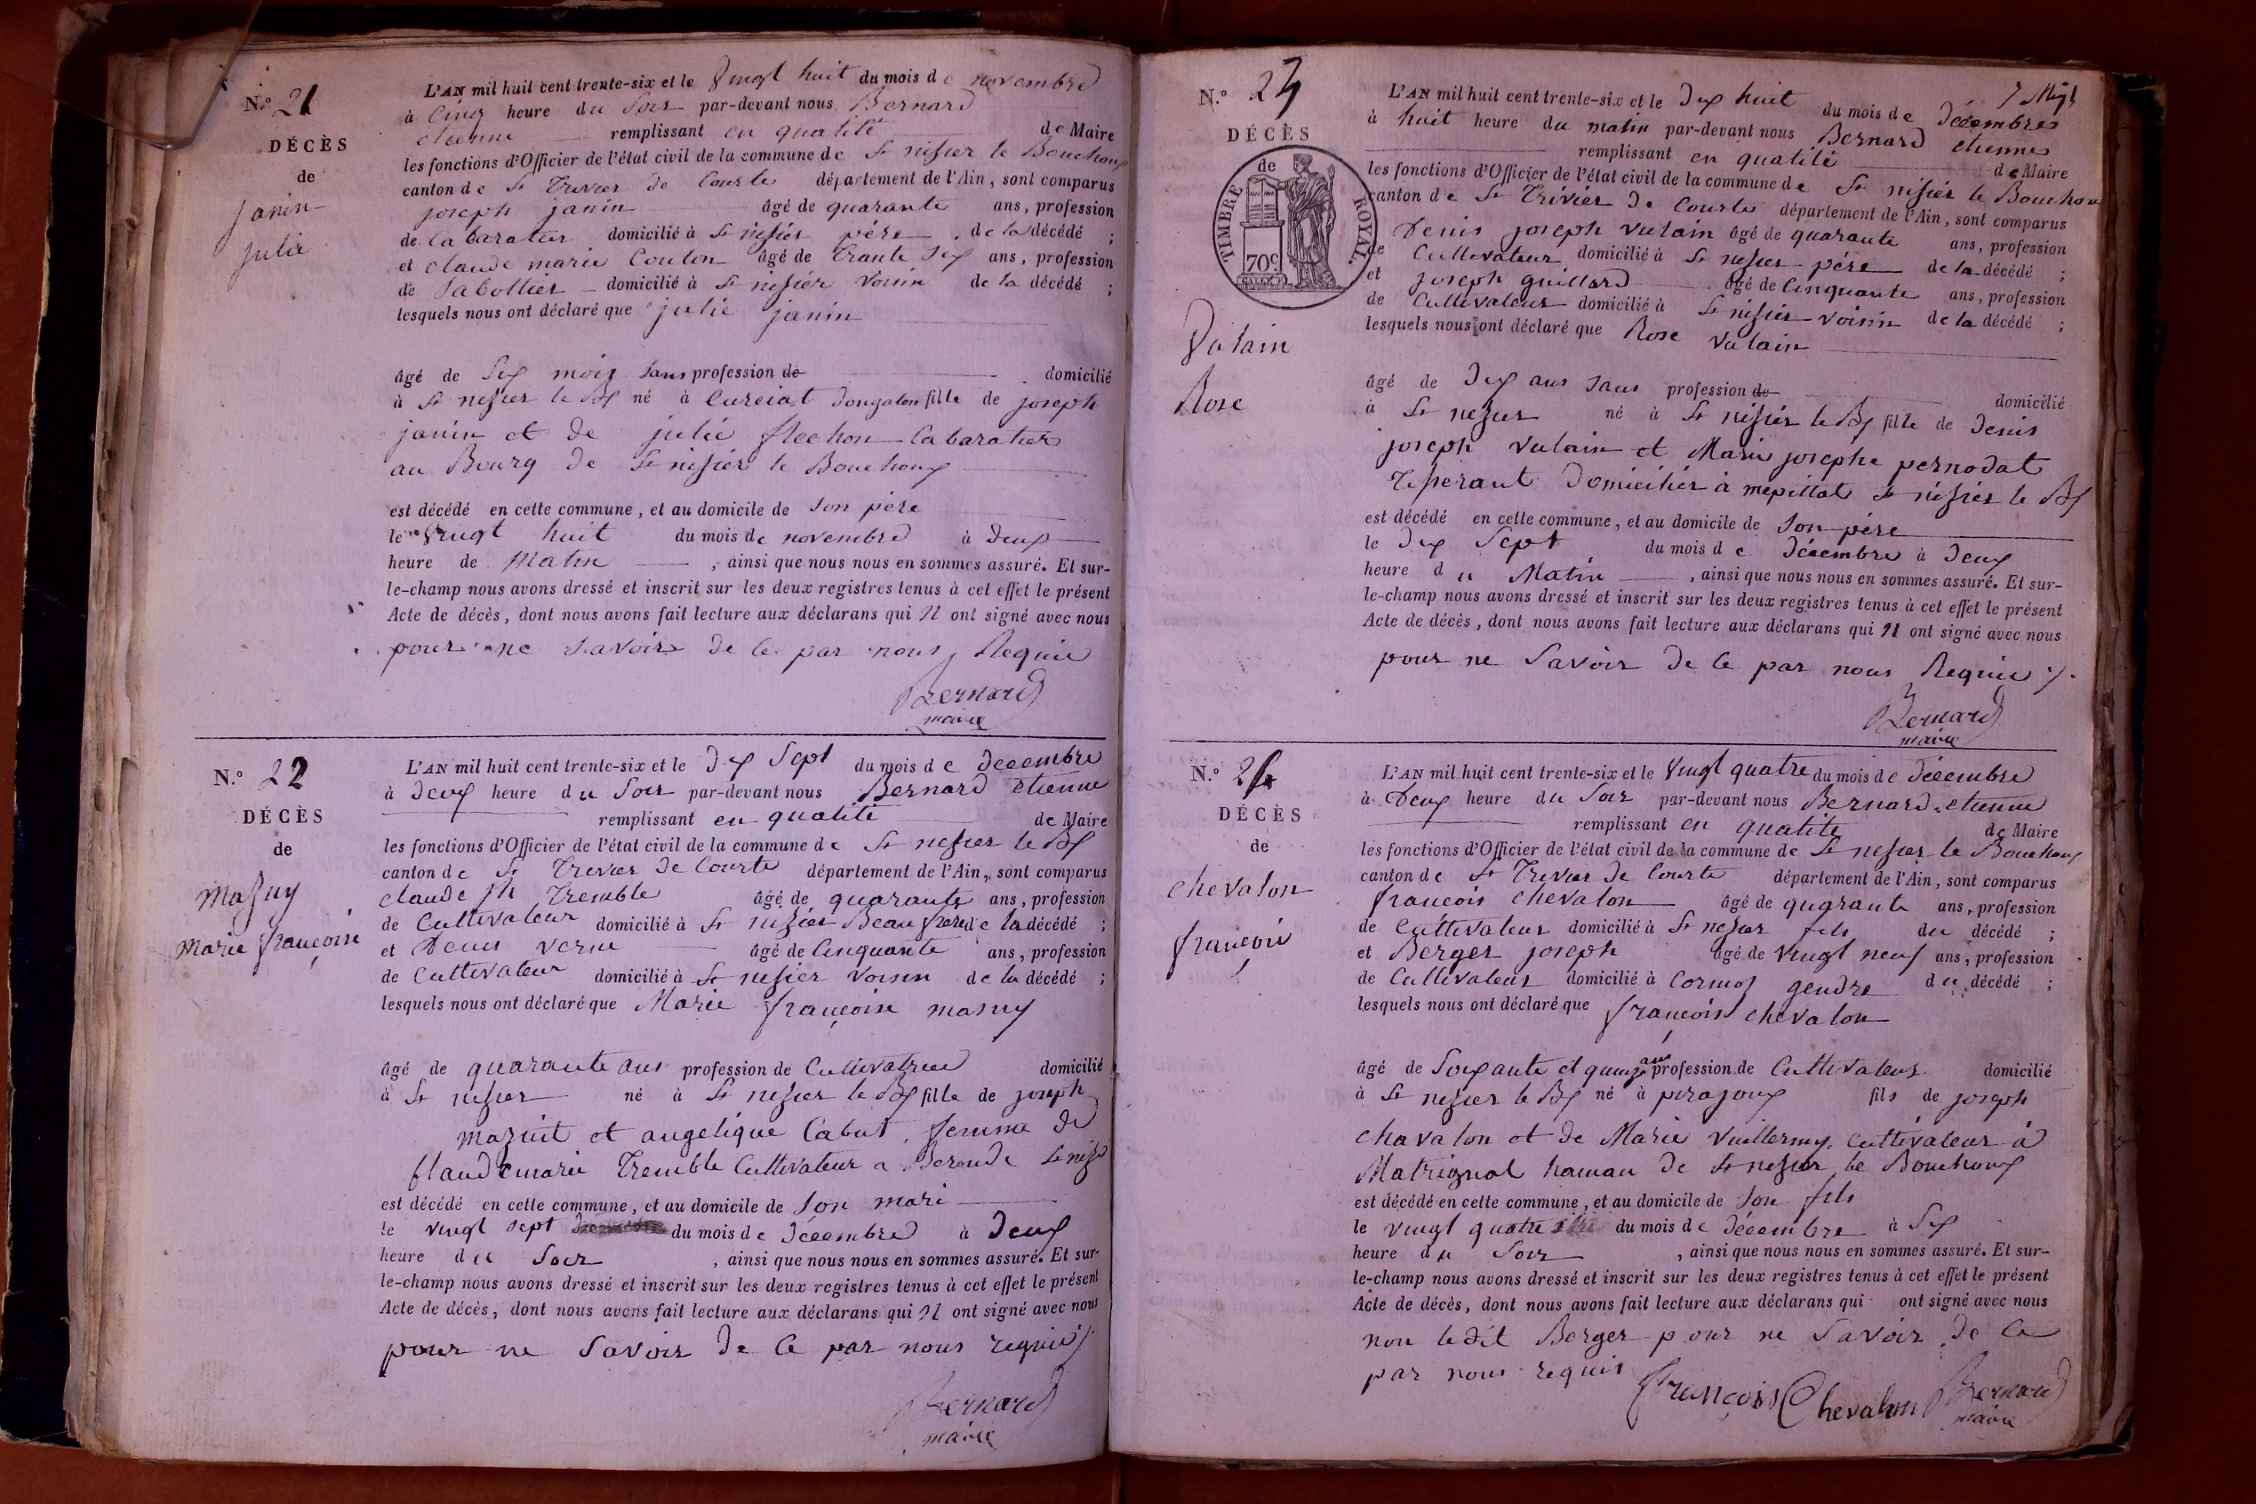 N.° 21
DÉCÈS
de
janin
julie
L'AN mil huit cent trente-six et le vingt huit du mois de novembre
à cinq heure du soir par-devant nous Bernard
etienne remplissant en qualité de Maire
les fonctions d'Officier de l'état civil de la commune de St nisier le Bouchoux
canton de St Trivier de Courtes département de l'Ain, sont comparus
joseph janin âgé de quarante ans, profession
de Cabaratier domicilié à St nisier père de la décédé ;
et claude marie Couton âgé de trante six ans, profession
de Sabottier domicilié à St nisier voisin de la décédé ;
lesquels nous ont déclaré que julie janin
âgé de six mois sans profession de domicilié
à St nisier le Bx né à Curciat dongalon fille de joseph
janin et de julie flechon Cabaratier
au Bourg de St nisier le Bouchoux
est décédé en cette commune, et au domicile de son père
le vingt huit du mois de novembre à deux
heure de Matin , ainsi que nous nous en sommes assuré. Et sur-
le-champ nous avons dressé et inscrit sur les deux registres tenus à cet effet le présent
Acte de décès, dont nous avons fait lecture aux déclarans qui n ont signé avec nous
pour ne savoir de ce par nous Requis
Bernard
maire
N.° 22
DÉCÈS
de
Mazuy
Marie françoise
L'AN mil huit cent trente-six et le dix sept du mois de decembre
à deux heure du soir par-devant nous Bernard etienne
remplissant en qualité de Maire
les fonctions d'Officier de l'état civil de la commune de St nisier le Bx
canton de St Trivier de Courte département de l'Ain, sont comparus
claude jh Tremble âgé de quarante ans, profession
de Cultivateur domicilié à St nisier Beau frere de la décédé ;
et Denis verne âgé de Cinquante ans, profession
de Cultivateur domicilié à St nisier voisin de la décédé ;
lesquels nous ont déclaré que Marie françoise masuy
âgé de quarante ans profession de Cultivatrice domicilié
à St nisier né à St nisier le Bx fille de joseph
mazuit et angelique Cabut femme de
Claude marie Tremble Cultivateur a Beronde St nisr
est décédé en cette commune, et au domicile de son mari
le vingt sept du mois de décembre à deux
heure du soir , ainsi que nous nous en sommes assuré. Et sur-
le-champ nous avons dressé et inscrit sur les deux registres tenus à cet effet le présent
Acte de décès, dont nous avons fait lecture aux déclarans qui n ont signé avec nous
pour ne savoir de ce par nous requis
Bernard
maire
N.° 23
DÉCÈS
de
TIMBRE ROYAL
70c
Vulain
Rose
L'AN mil huit cent trente-six et le dix huit du mois de décembre
à huit heure du matin par-devant nous Bernard etienne
remplissant en qualité de Maire
les fonctions d'Officier de l'état civil de la commune de St nisier le Bouchoux
canton de St Trivier de Courte département de l'Ain, sont comparus
Denis joseph vulain âgé de quarante ans, profession
de Cultivateur domicilié à St nisier père de la décédé ;
et joseph guillard âgé de Cinquante ans, profession
de Cultivateur domicilié à St nisier voisin de la décédé ;
lesquels nous ont déclaré que Rose vulain
âgé de dix ans sans profession de domicilié
à St nisier né à St nisier le Bx fille de denis
joseph vulain et Marie josephe pernodat
domiciliés à mepillat St nisier le Bx
est décédé en cette commune, et au domicile de son père
le dix sept du mois de décembre à deux
heure du Matin , ainsi que nous nous en sommes assuré. Et sur-
le-champ nous avons dressé et inscrit sur les deux registres tenus à cet effet le présent
Acte de décès, dont nous avons fait lecture aux déclarans qui n ont signé avec nous
pour ne savoir de ce par nous Requis
Bernard
maire
N.° 24
DÉCÈS
de
chevalon
françois
L'AN mil huit cent trente-six et le vingt quatre du mois de décembre
à deux heure du soir par-devant nous Bernard etienne
remplissant en qualité de Maire
les fonctions d'Officier de l'état civil de la commune de St nisier le Bouchoux
canton de St Trivier de Courte département de l'Ain, sont comparus
françois chevalon âgé de quarante ans, profession
de Cultivateur domicilié à St nisier fils du décédé ;
et Berger joseph âgé de vingt neuf ans, profession
de Cultivateur domicilié à Cormoz gendre du décédé ;
lesquels nous ont déclaré que françois chevalon
âgé de soixante et quinze ans profession de Cultivateur domicilié
à St nisier le Bx né à pirajoux fils de joseph
chavalon et de Marie vuillermy cultivateur à
Matrignat hamau de St nisier le Bouchoux
est décédé en cette commune, et au domicile de son fils
le vingt quatre du mois de décembre à six
heure du soir , ainsi que nous nous en sommes assuré. Et sur-
le-champ nous avons dressé et inscrit sur les deux registres tenus à cet effet le présent
Acte de décès, dont nous avons fait lecture aux déclarans qui ont signé avec nous
non ledit Berger pour ne savoir de ce
par nous requis
François Chevalon Bernard
maire